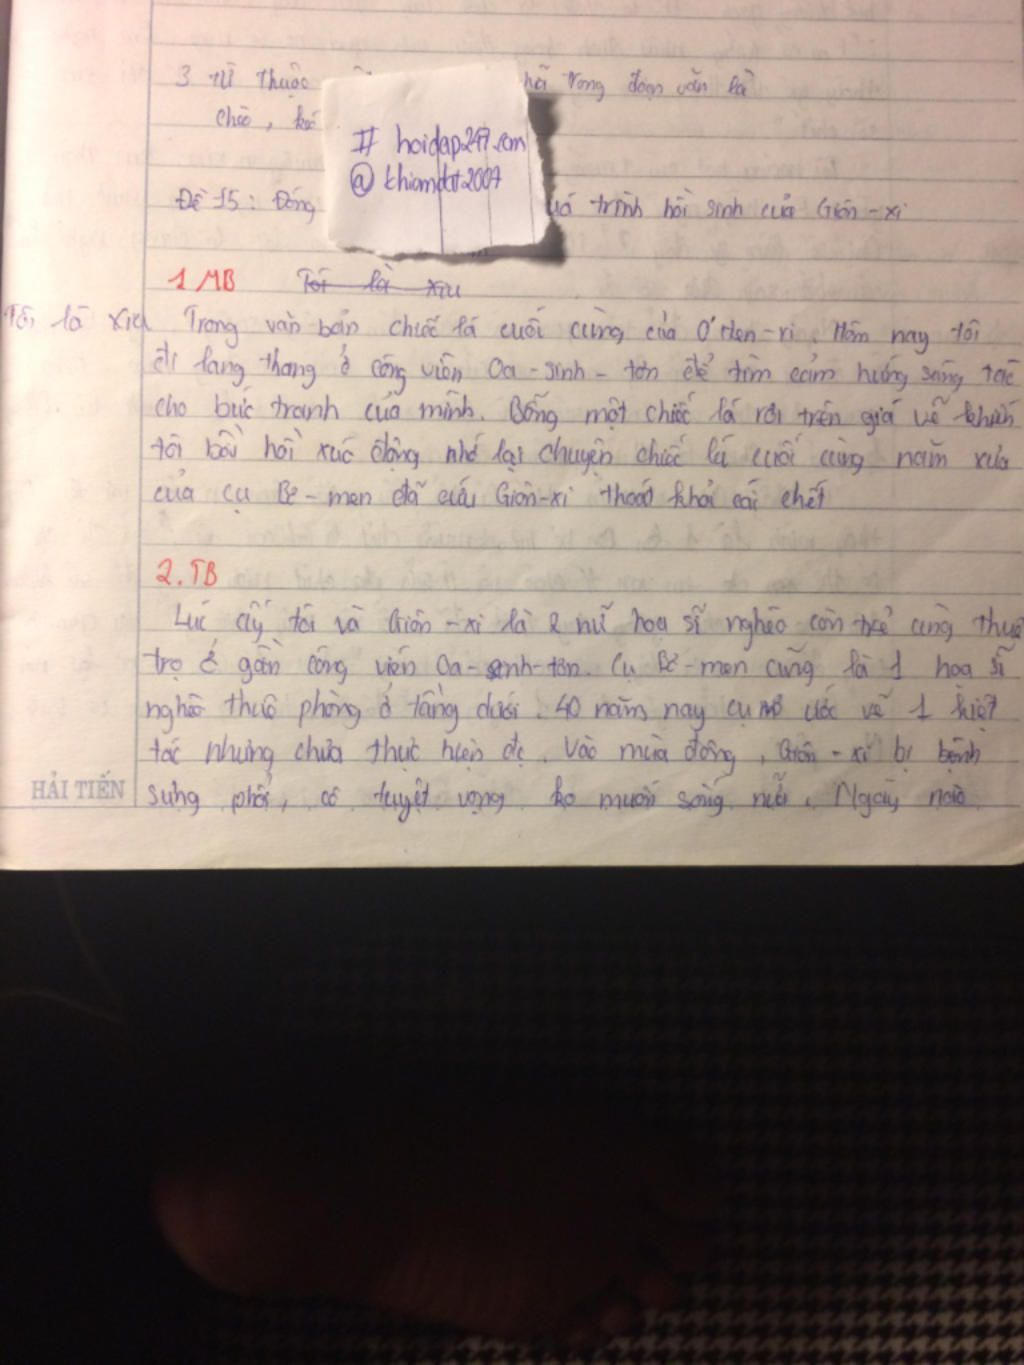 3 từ thuộc hã trong đoạn văn là
chèo, kéo
# hoidap247.com
@ khiamdat2007
Đề 15: Đóng uá trình hồi sinh của Giôn-xi
1 MB Tôi là xiu
Tôi là xiu Trong văn bản chiếc lá cuối cùng của O'Hen-ri. Hôm nay tôi
đi lang thang ở công viên Oa-sinh-tơn để tìm cảm hứng sáng tác
cho bức tranh của mình. Bỗng một chiếc lá rơi trên giá vẽ khiến
tôi bồi hồi xúc động nhớ lại chuyện chiếc lá cuối cùng năm xưa
của cụ Bơ-men đã cứu Giôn-xi thoát khỏi cái chết
2.TB
Lúc ấy tôi và Giôn-xi là 2 nữ hoạ sĩ nghèo còn trẻ cùng thuê
trọ ở gần công viên Oa-sinh-tơn. Cụ Bơ-men cũng là 1 hoạ sĩ
nghèo thuê phòng ở tầng dưới. 40 năm nay cụ mơ ước vẽ 1 kiệt
tác nhưng chưa thực hiện đc. Vào mùa đông, Giôn-xi bị bệnh
HẢI TIẾN sưng phổi, cô tuyệt vọng ko muốn sống nữa. Ngày nào